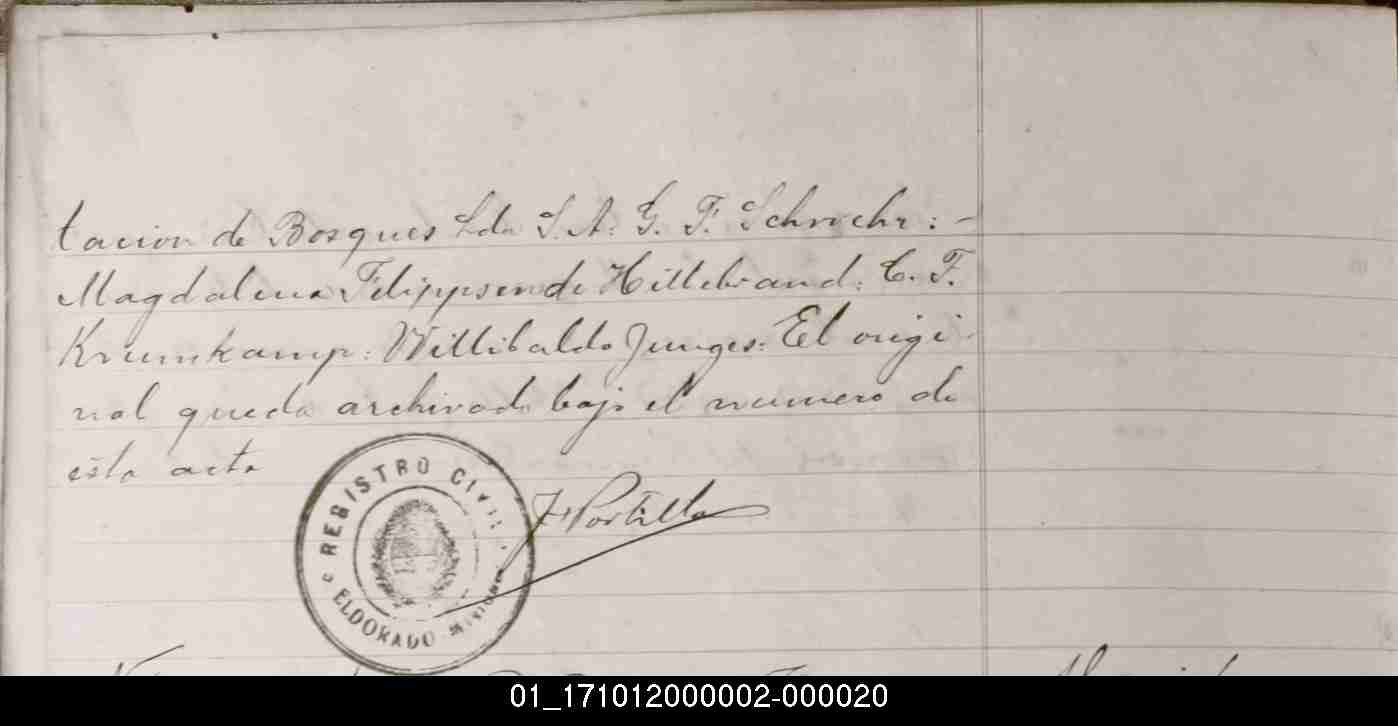 tacion de Bosques Lda S. A. G. F. Schrochr: -
Magdalena Filippsen de Hillebrand: C. F.
Krumkamp: Willibaldo Junges: El origi-
nal queda archivado bajo el numero de
esta acta
REGISTRO CIVIL
ELDORADO MISIONES
F Portillo
01_171012000002-000020